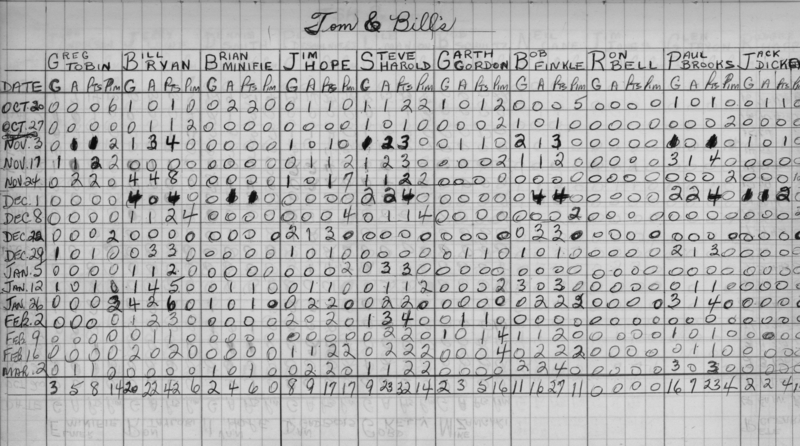 Tom & Bill's
GREG TOBIN BILL RYAN BRIAN MINIFIE JIM HOPE STEVE HAROLD GARTH GORDON BOB FINKLE RON BELL PAUL BROOKS JACK DICKEY
DATE G A Pts Pim G A Pts Pim G A Pts Pim G A Pts Pim G A Pts Pim G A Pts Pim G A Pts Pim G A Pts Pim G A Pts Pim G A Pts
OCT.20 0 0 0 6 1 0 1 0 0 2 2 0 0 1 1 0 1 1 2 2 1 0 1 2 0 0 0 5 0 0 0 0 1 0 1 0 0 1 1 0
OCT.27 0 0 0 0 0 1 1 2 0 0 0 0 0 0 0 0 1 0 1 0 0 0 0 2 1 0 1 0 0 0 0 0 0 0 0 2 0 0 0
NOV.3 0 1 1 2 1 3 4 0 0 0 0 0 1 0 1 0 1 2 3 0 0 1 1 0 2 1 3 0 0 0 0 0 1 0 1 0 1 0 1
NOV.17 1 1 2 2 0 0 0 0 0 0 0 0 0 1 1 2 1 2 3 0 0 0 0 2 1 1 2 0 0 0 0 0 3 1 4 0 0 0 0
NOV.24 0 2 2 0 4 4 8 0 0 0 0 0 1 0 1 7 1 1 2 2 0 0 0 0 0 0 0 0 0 0 0 0 0 0 0 2 0 0 0
DEC.1 0 0 0 0 4 0 4 0 0 1 1 0 0 0 0 0 2 2 4 0 0 0 0 0 0 4 4 0 0 0 0 0 2 2 4 0 1 1 2
DEC.8 0 0 0 0 1 1 2 4 0 0 0 0 0 0 0 4 0 1 1 4 0 0 0 0 0 0 0 2 0 0 0 0 0 0 0 0 0 0 0
DEC.22 0 0 0 2 0 0 0 0 0 0 0 0 2 1 3 0 0 0 0 0 0 0 0 0 0 3 3 0 0 0 0 0 0 0 0 0 0 0 0
DEC.29 1 0 1 0 0 3 3 0 0 0 0 0 1 0 1 0 0 0 0 0 0 1 1 0 1 0 1 0 0 0 0 0 2 1 3 0 0 0 0
JAN.5 0 0 0 0 1 1 2 0 0 0 0 0 0 0 0 2 0 3 3 0 0 0 0 0 0 0 0 0 0 0 0 0 0 0 0 0 0 0 0
JAN.12 1 0 1 0 1 4 5 0 0 0 0 0 1 1 0 0 0 1 1 2 0 0 0 2 3 0 3 0 0 0 0 0 0 1 1 0 0 0 0
JAN.26 0 0 0 2 4 2 6 0 1 0 1 0 0 2 2 0 0 2 2 0 0 0 0 0 0 2 2 2 0 0 0 0 3 1 4 0 0 0 0
FEB.2 0 0 0 0 1 2 3 0 0 0 0 0 2 0 2 0 1 3 4 0 0 1 1 0 0 0 0 0 0 0 0 0 0 0 0 0 0 0 0
FEB.9 0 0 0 0 0 1 1 0 0 0 0 0 0 0 0 0 0 2 2 0 1 0 1 4 1 1 2 0 0 0 0 0 1 0 1 0 0 0 0
FEB.16 0 0 0 0 2 0 2 0 0 0 0 0 1 1 2 2 0 1 2 2 0 0 0 4 0 2 2 2 0 0 0 0 0 1 1 0 0 0 0
MAR.2 0 1 1 2 0 0 0 0 1 0 1 0 0 2 2 0 1 2 2 2 0 0 0 0 2 2 4 0 0 0 0 0 3 0 3 0 0 0 0
3 5 8 14 20 22 42 6 2 4 6 0 8 9 17 17 9 23 32 14 2 3 5 16 11 16 27 11 0 0 0 0 16 7 23 4 2 2 4